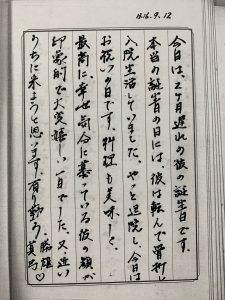 H16.9.12
今日は、2ヶ月遅れの彼の誕生日です。
本当の誕生日の日には、彼は転んで骨折し
入院生活していました。やっと退院し、今日は
お祝いの日です。料理も美味しく、
最高に幸せ気分に慕っている彼の顔が
印象的で大変嬉しい一日でした。又、近い
うちに来ようと思います。有り難う。